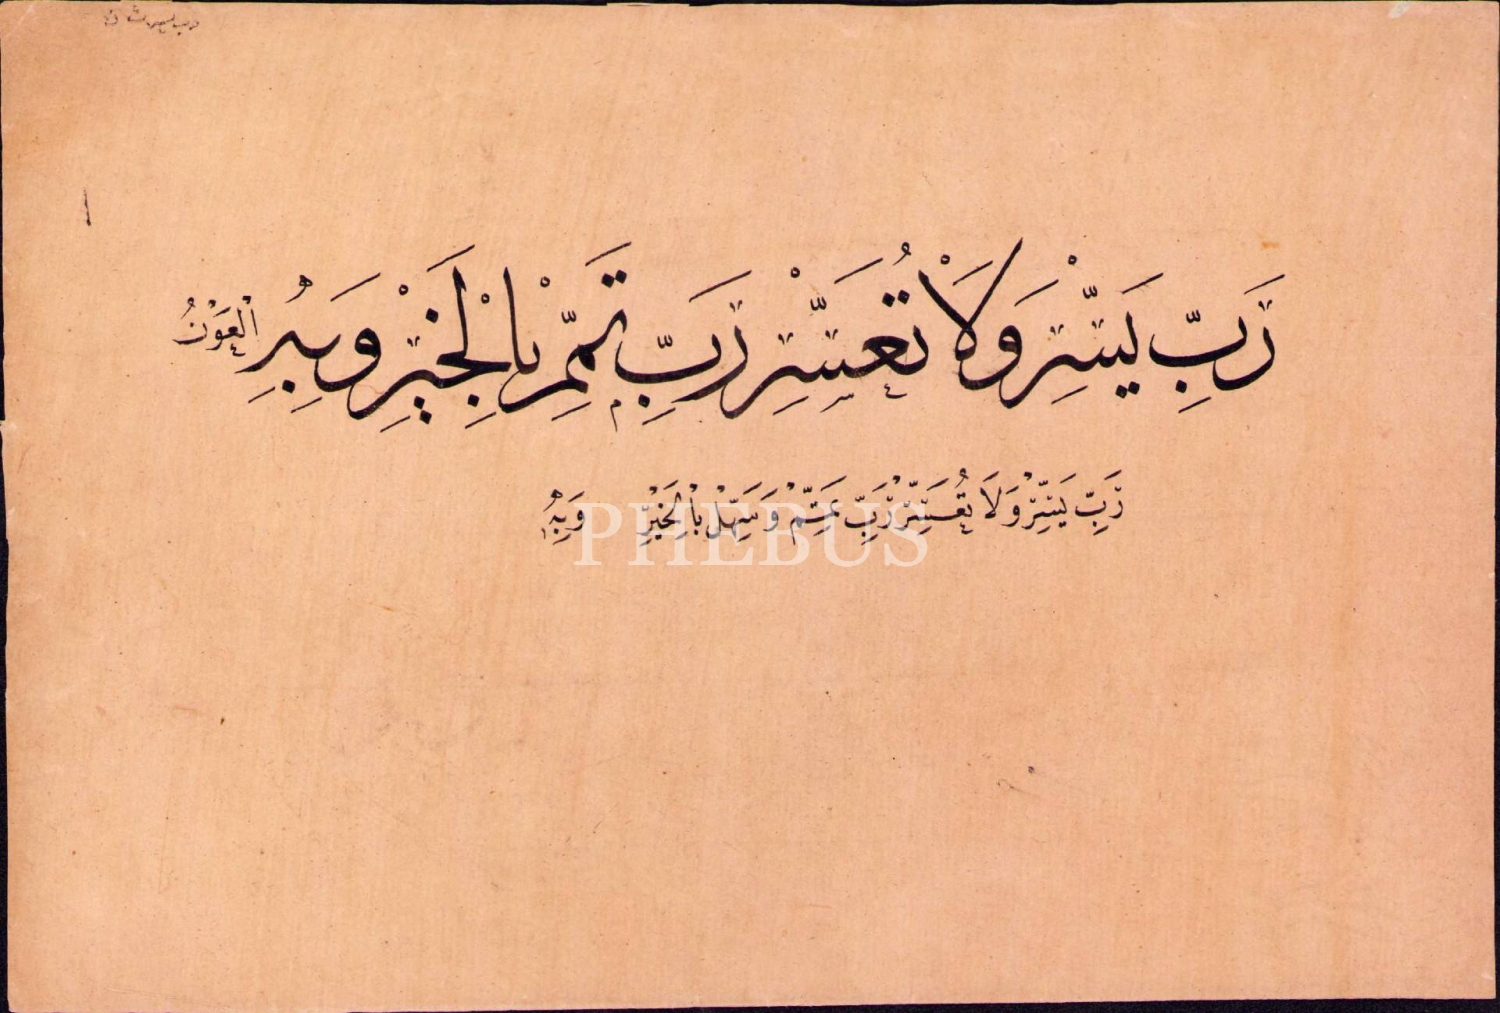 رَبِّ يَسِّرْ وَلَا تُعَسِّرْ رَبِّ تَمِّمْ بِالْخَيْرِ وَبِهِ الْعَوْنُ
رَبِّ يَسِّرْ وَلَا تُعَسِّرْ رَبِّ تَمِّمْ وَسَهِّلْ بِالْخَيْرِ وَبِهِ
PHEBUS